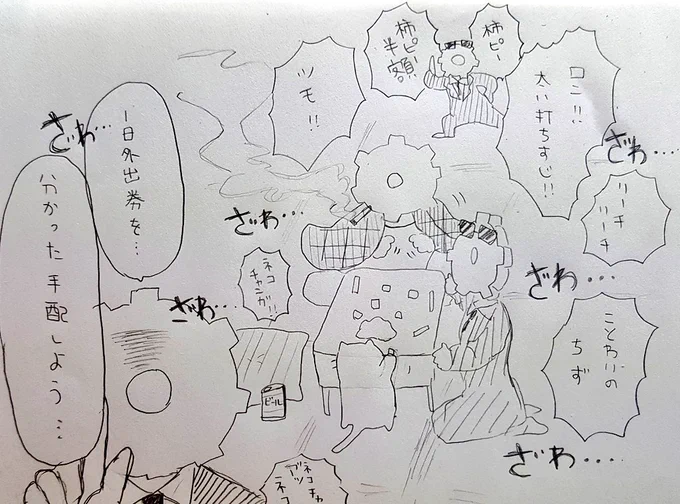 柿ピー
柿ピー
半額!!
ロン!!
太い打ちすじ!!
ツモ!!
ざわ…
一日外出券を…
ざわ…
リーチ
リーチ
ざわ…
ネコ
チャンガ!!
ざわ…
ことわりの
ちず
ざわ…
分かった手配しよう…
ビール
ざわ….
ネコチャ
ネコ